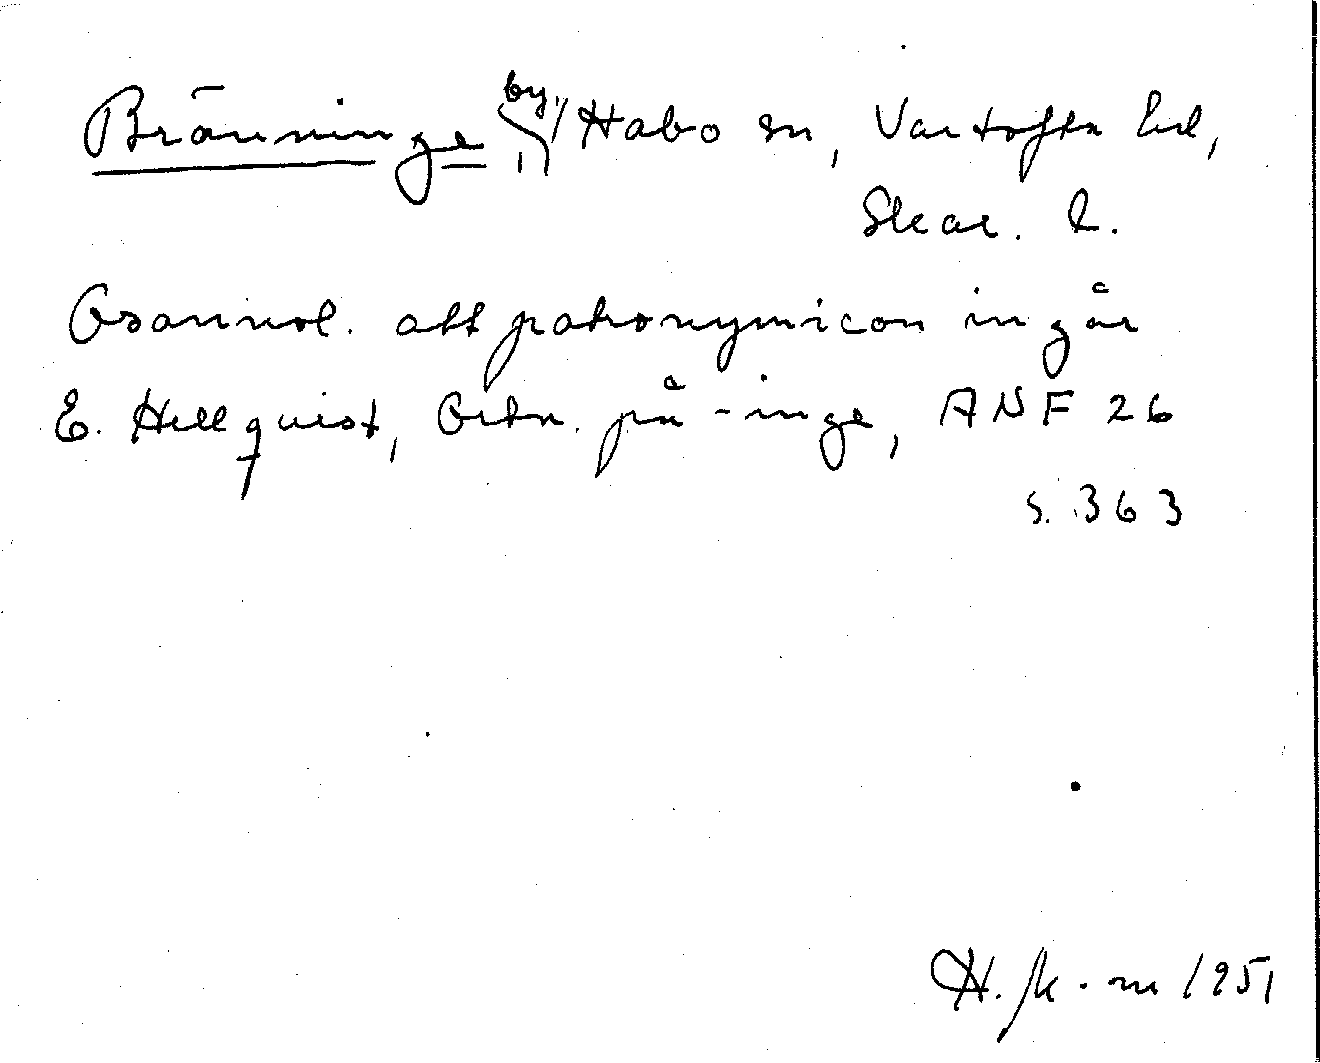 Bränninge, by, Habo sn, Vartofta hd,
Skar. l.
Osannol. att patronymicon ingår
E. Hellquist, Ortn. på -inge, ANF 26
s. 363
H. 1951